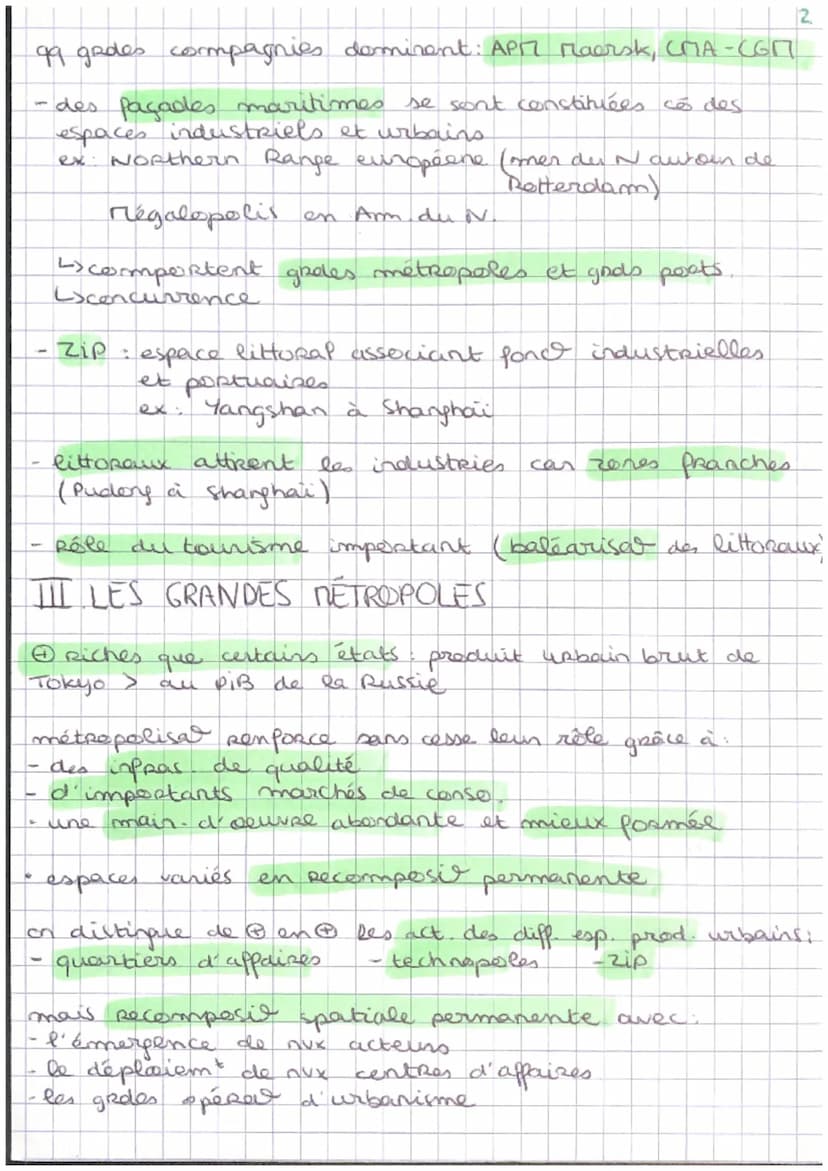 2.
qq gdes compagnies dominent : APM Maersk, CMA-CGM
- des façades maritimes se sont constituées cô des
espaces industriels et urbains
ex : Northern Range européene (mer du N autour de
Rotterdam)
Mégalopolis en Am. du N.
↳ comportent gdes métropoles et gnds ports.
↳ concurrence
- ZiP : espace littoral associant fonc° industrielles
et portuaires
ex : Yangshan à Shanghaï
- littoraux attirent les industries car zones franches
(Pudong à Shanghaï)
- rôle du tourisme important (baléarisa° des littoraux)
III LES GRANDES MÉTROPOLES
⊕ riches que certains états : produit urbain brut de
Tokyo > au PiB de la Russie
métropolisa° renforce sans cesse leur rôle grâce à :
- des infras. de qualité
- d'importants marchés de conso.
- une main-d'oeuvre abondante et mieux formée
• espaces variés en recomposi° permanente
on distingue de ⊕ en ⊕ les act. des diff. esp. prod. urbains :
- quartiers d'affaires - technopoles - zip
mais recomposi° spatiale permanente avec :
- l'émergence de nvx acteurs
- le déploiemᵗ de nvx centres d'affaires
- les gdes opéra° d'urbanisme